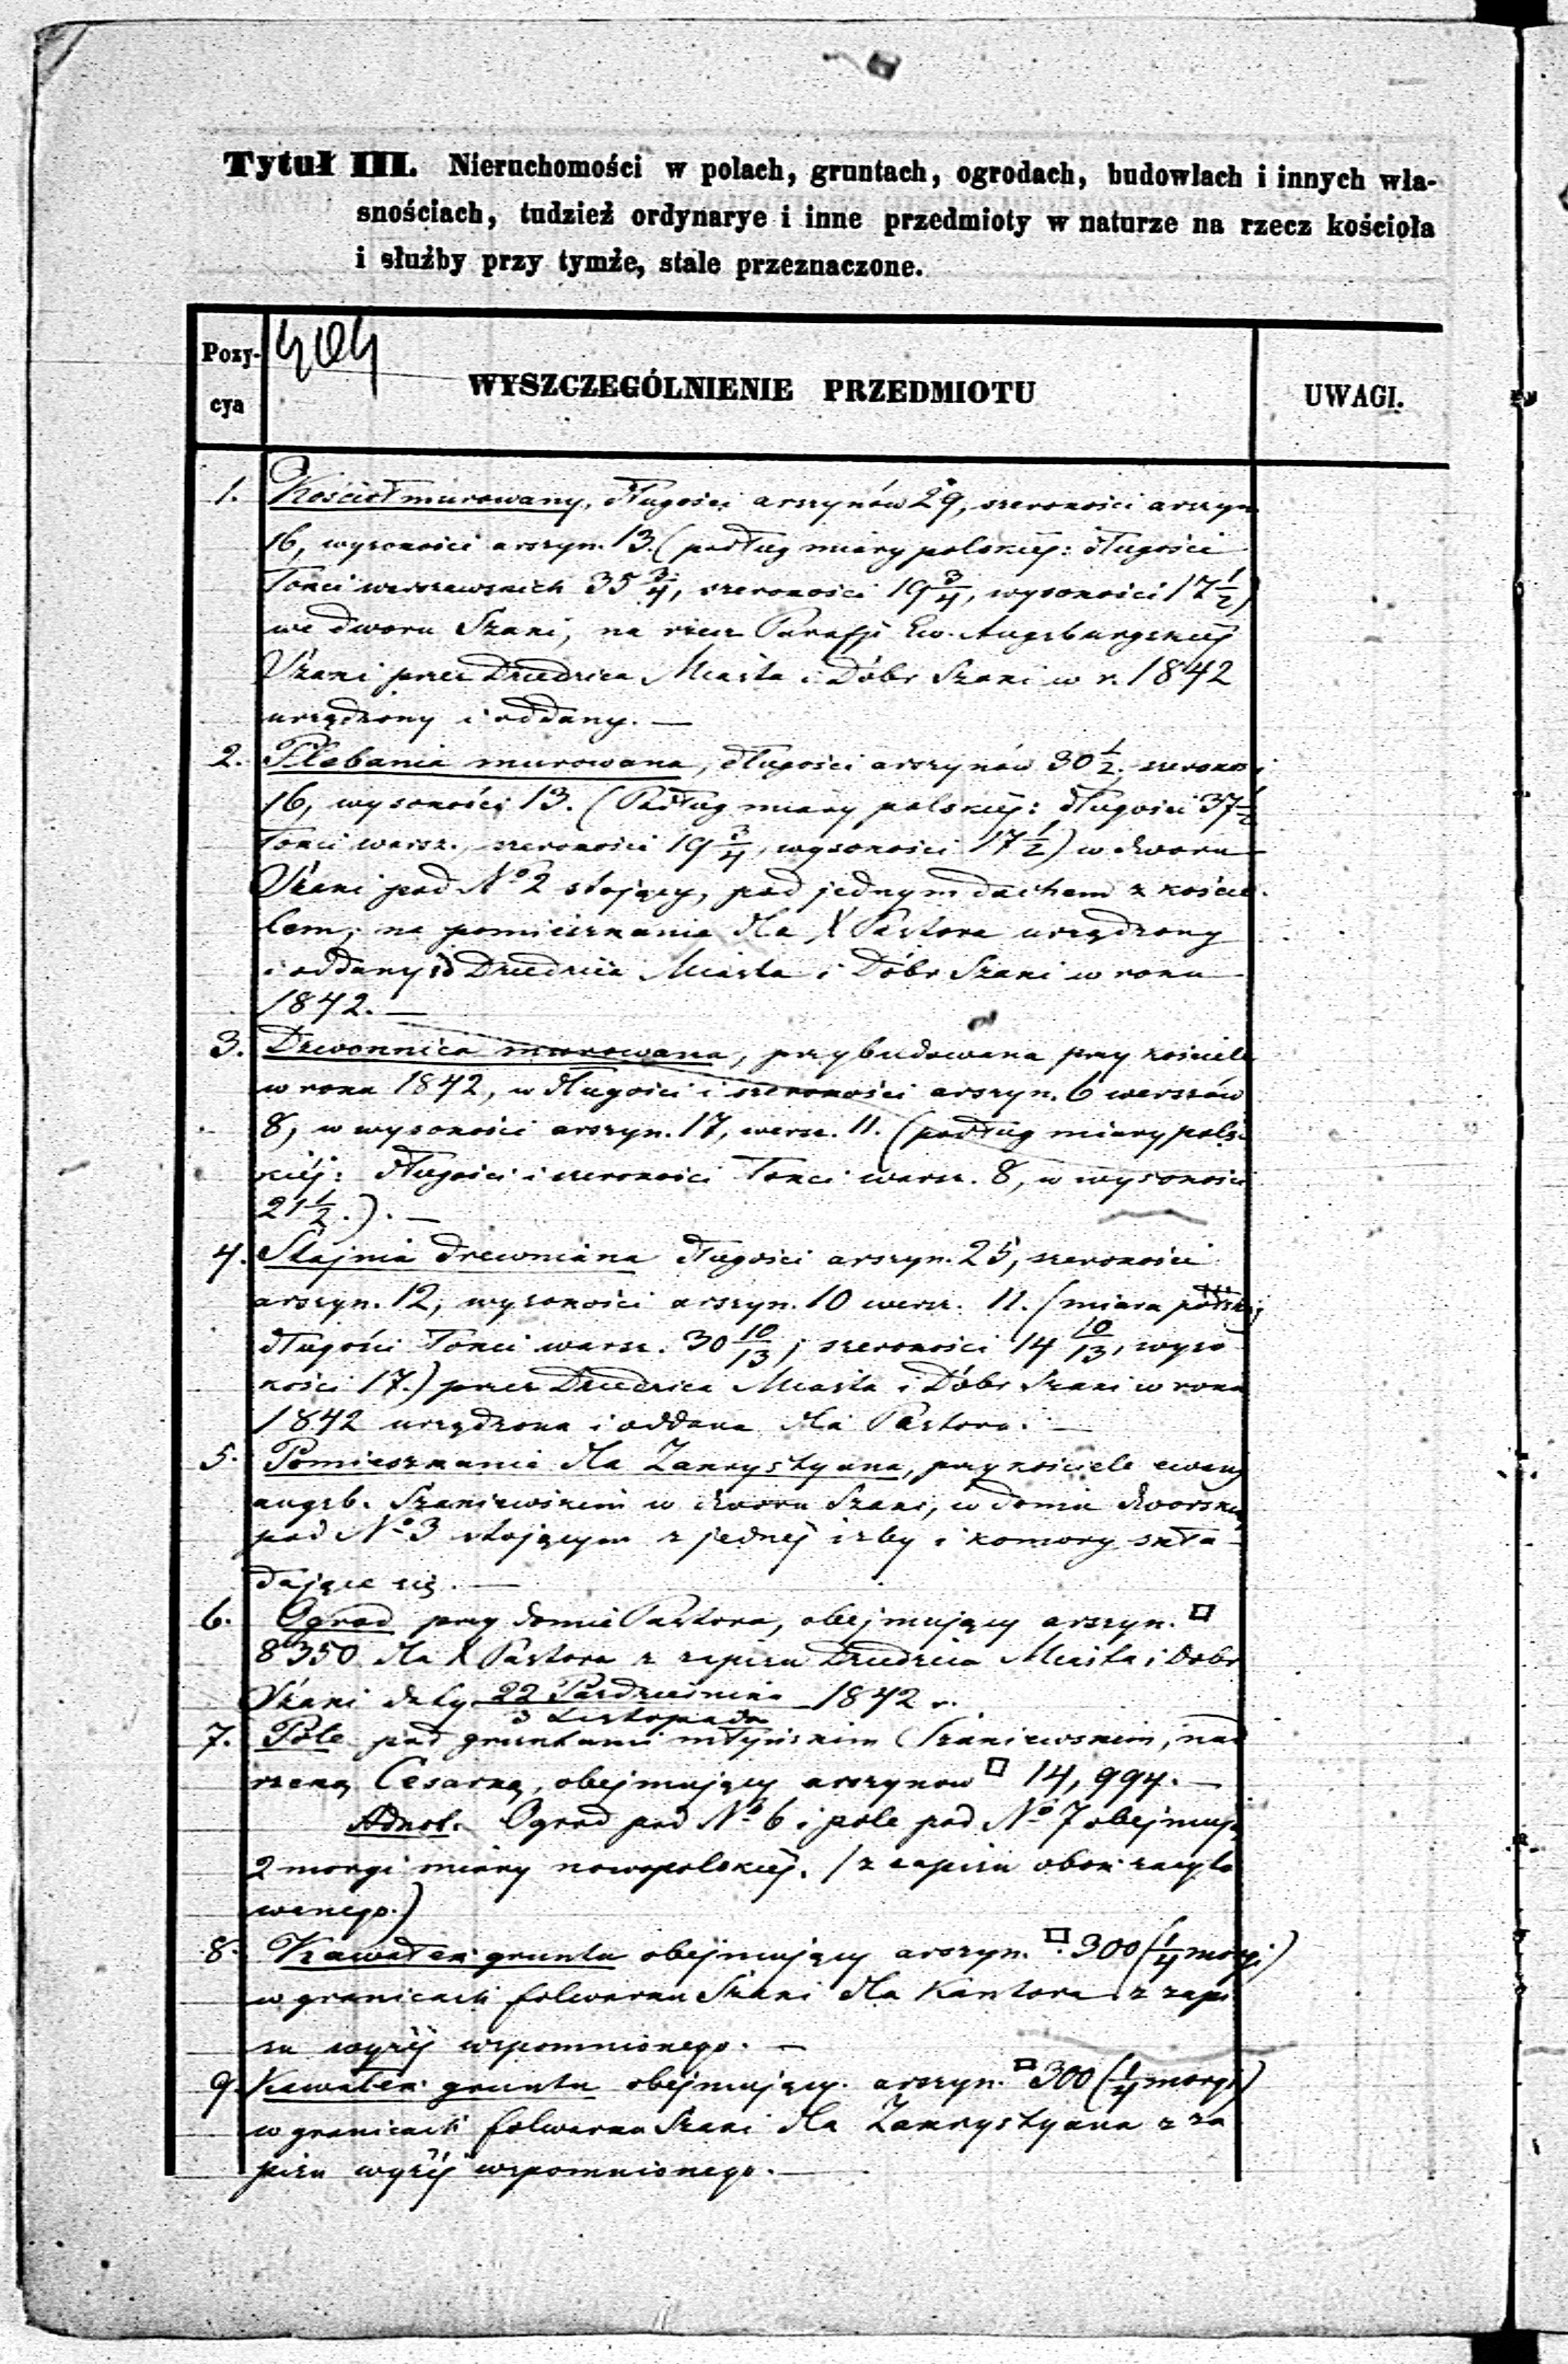 Tytuł III. Nieruchomości w polach, gruntach, ogrodach, budowlach i innych wła-
snościach, tudzież ordynarye i inne przedmioty w naturze na rzecz kościoła
i służby przy tymże, stale przeznaczone.
Pozy-
cya
WYSZCZEGÓLNIENIE PRZEDMIOTU
UWAGI.
1. Kościół murowany, długości arszynów 29, szerokości arszyn
16, wysokości arszyn. 13. (podług miary polskiéj: długości
Łokci warszawskich 35 3/4, szerokości 19 3/4, wysokości 17 1/2)
we dworu Szaki, na rzecz Parafji Ew. Augsburgskiéj
Szaki przez Dziedzica Miasta i Dóbr Szaki w r. 1842
urządzony i oddany. —
2. Plebania murowana, długości arszynów 30 1/2, szerokości
16, wysokości 13. (Podług miary polskiéj: długości 37 1/2
Łokci warsz., szerokości 19 3/4, wysokości 17 1/2) w dworu
Szaki pod No 2 stojący, pod jednym dachem z kościo-
łem, na pomieszkanie dla X Pastora urządzony
i oddany Dziedzica Miasta i Dóbr Szaki w roku
1842. —
3. Dzwonnica murowana, przybudowana przy kościele
w roku 1842, w długości i szerokości arszyn. 6 werszków
8, w wysokości arszyn. 17, wersz. 11. (podług miary pols-
kiéj: długości i szerokości Łokci warsz. 8, w wysokości
21 1/2.). —
4. Stajnia drewniana długości arszyn. 25, szerokości
arszyn. 12, wysokości arszyn. 10 wersz. 11. (miara
długości Łokci warsz. 30 10/13, szerokości 14 10/13, wyso-
kości 17.) przez Dziedzica Miasta i Dóbr Szaki w roku
1842 urządzona i oddana dla Pastora. —
5. Pomieszkanie dla Zakrystyana, przy kościele ewang
augsb. Szakiewskim w dworu Szaki, w domu dworskim
pod No 3 stojącym z jednéj izby i komory skła-
dające się. —
6. Ogród przy domie Pastora, obejmujący arszyn. □
8350 dla X Pastora z zapisu Dziedzica Miasta i Dóbr
Szaki daty 22 Października 1842 r.
3 Listopada
7. Pole pod gruntami młyńskim Szakiewskim, nad
rzeką Cesarką, obejmujący arszynow □ 14,994. —
Adnot. Ogrod pod No 6 i pole pod No 7 obejmują
2 morgi miary nowopolskiéj. (z zapisu obok zacyto
wanego.)
8. Kawałek gruntu obejmujący arszyn. □ 300 (1/4 morgi)
w granicach folwarku Szaki dla Kantora z zapi
su wyżéj wspomnionego. —
9. Kawałek gruntu obejmujący arszyn. □ 300 (1/4 morgi)
w granicach folwarku Szaki dla Zakrystyana z za
pisu wyżéj wspomnionego. —